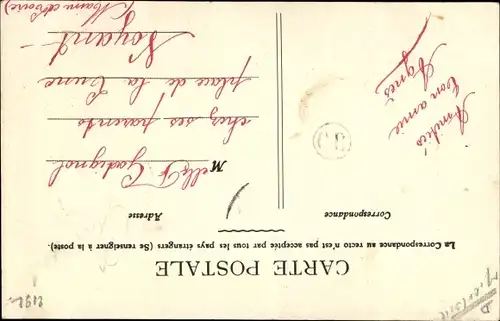 CARTE POSTALE
La Correspondance au recto n'est pas acceptée par tous les pays étrangers (Se renseigner à la poste).
Correspondance
Adresse
Amitiés
ton amie
Agnès
Melle F. Godignol
chez ses parents
place de la Cure
Noyant
(Maine et Loire)